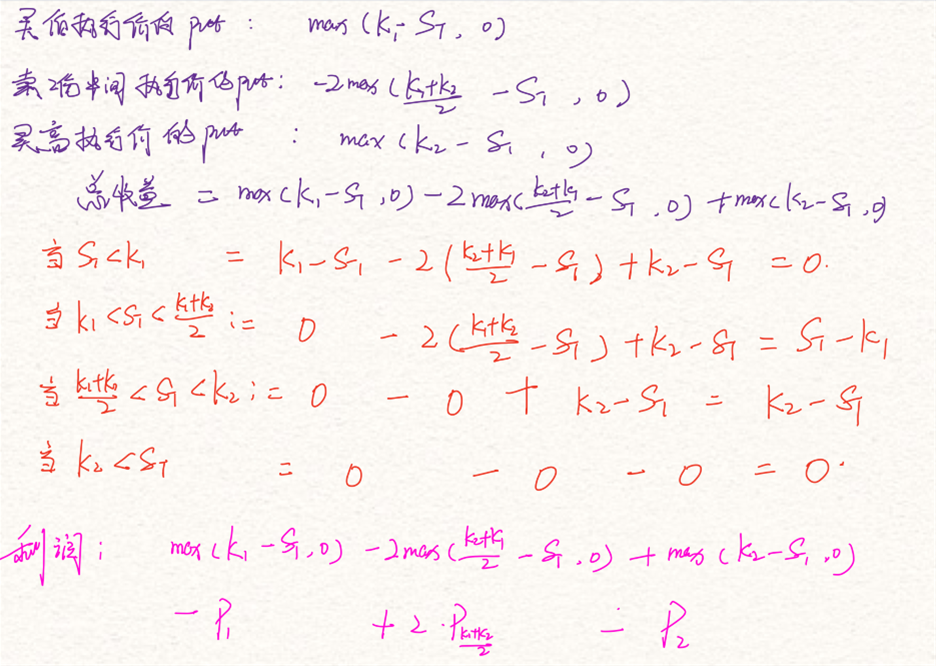 买低执行价的 put : max (K₁-S_T, 0)
卖2份中间执行价的put: -2max (\frac{K₁+K₂}{2} - S_T, 0)
买高执行价的 put : max (K₂ - S_T, 0)
总收益 = max (K₁-S_T, 0) - 2max(\frac{K₂+K₁}{2} - S_T, 0) + max(K₂-S_T, 0)
当 S_T<K₁ = K₁-S_T - 2(\frac{K₂+K₁}{2} - S_T) + K₂-S_T = 0.
当 K₁<S_T<\frac{K₁+K₂}{2} := 0 - 2(\frac{K₁+K₂}{2} - S_T) + K₂-S_T = S_T-K₁
当 \frac{K₁+K₂}{2} < S_T < K₂ := 0 - 0 + K₂-S_T = K₂-S_T
当 K₂<S_T = 0 - 0 - 0 = 0.
利润: max (K₁-S_T, 0) - 2max(\frac{K₂+K₁}{2} - S_T, 0) + max (K₂-S_T, 0)
- P₁ + 2·P_{\frac{K₁+K₂}{2}} - P₂